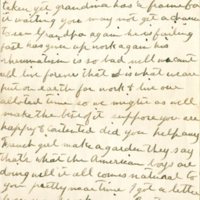 taken yet grandma has a frame for
it waiting you may not get a chance
to see Grandpa again he is failing
fast has given up work again his
rheumatism is so bad well we cant
all live forever that is what we are
put on earth for work & live our
allotted time so we might as well
make the best of it suppose you are
happy & contented did you help any
French girl make a garden they say
thats what the American boys are
doing well it all comes natural to
you pretty near time I got a letter